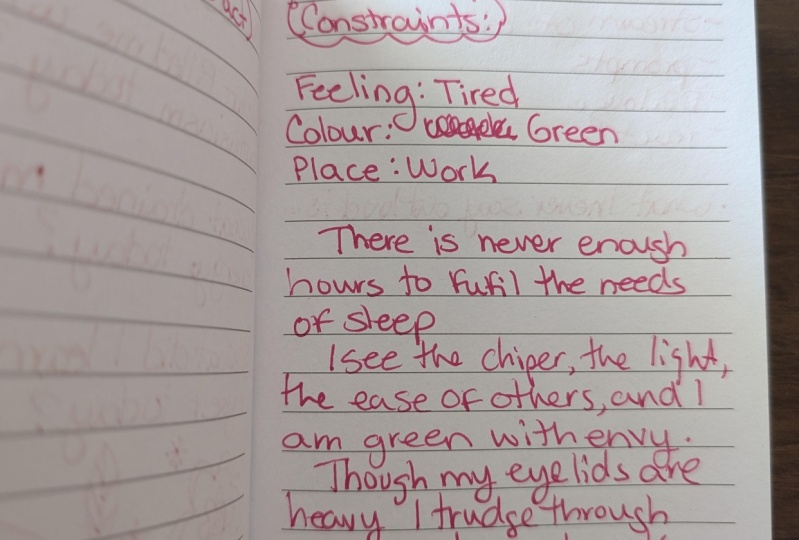 act)
(Constraints:)
Feeling: Tired
Colour: Green
Place: Work
There is never enough
hours to fufil the needs
of sleep
I see the chiper, the light,
the ease of others, and I
am green with envy.
Though my eyelids are
heavy I trudge through